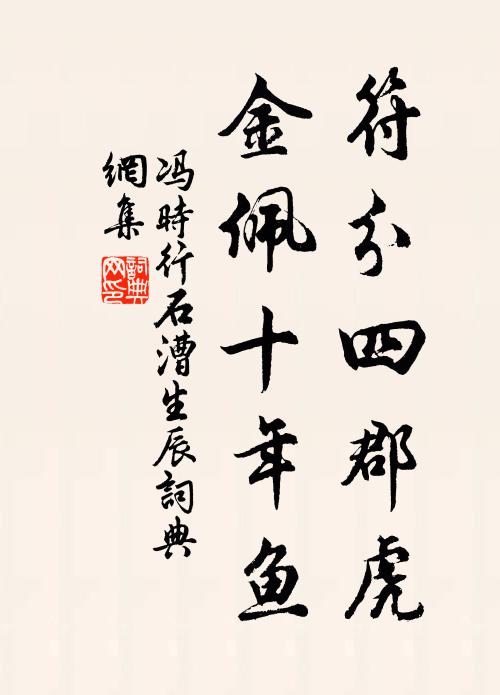 符分四郡虎
金佩十年鱼
冯時行石漕生辰詞典
網集
詞典
网印